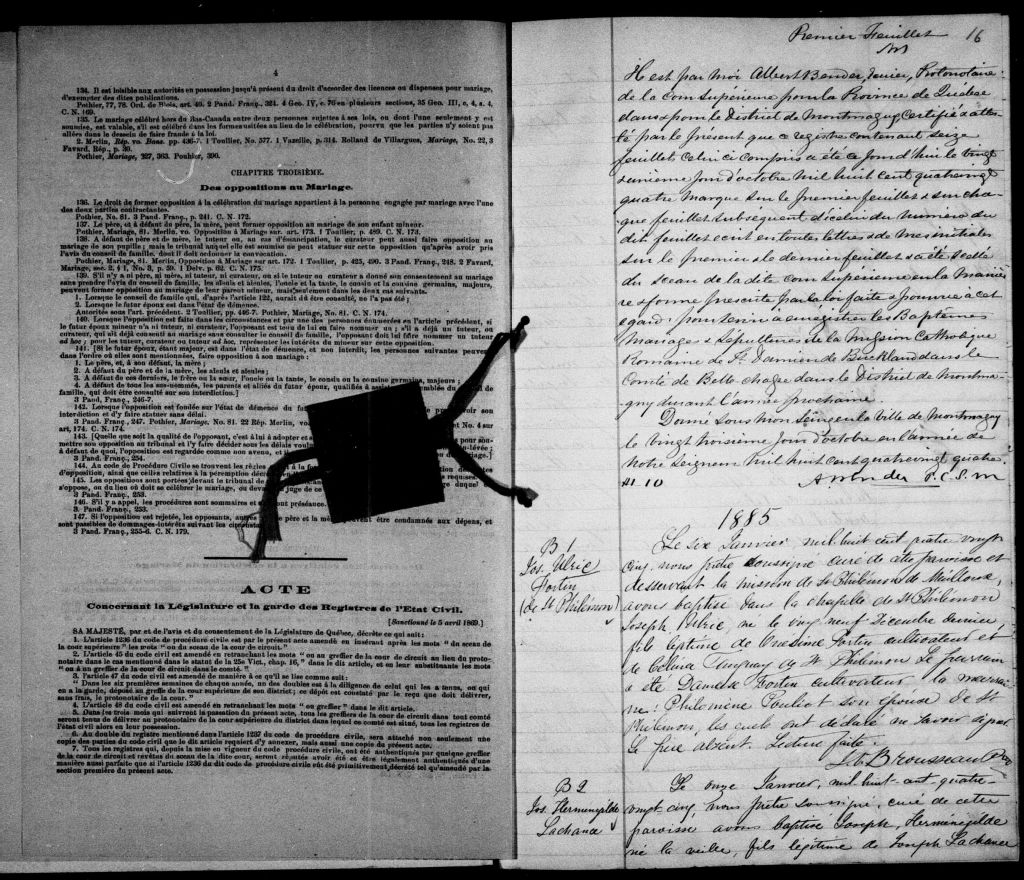 4
134. Il est loisible aux autorités en possession jusqu'à présent du droit d'accorder des licences ou dispenses pour mariage,
d'exempter des dites publications.
Pothier, 77, 78. Ord. de Blois, art. 40. 2 Pand. Franç., 324. 4 Geo. IV, c. 76 en plusieurs sections, 35 Geo. III, c. 4, s. 4,
C. N. 169.
135. Le mariage célébré hors du Bas-Canada entre deux personnes sujettes à ses lois, ou dont l'une seulement y est
soumise, est valable, s'il est célébré dans les formes usitées au lieu de la célébration, pourvu que les parties n'y soient pas
allées dans le dessein de faire fraude à la loi.
2 Merlin, Rép. vo. Bans. pp. 436-7. 1 Toullier, No. 577. 1 Vazeille, p. 314. Rolland de Villargues, Mariage, No. 22, 3
Favard, Rép., p. 36.
Pothier, Mariage, 227, 363. Pothier, 396.
CHAPITRE TROISIÈME.
Des oppositions au Mariage.
136. Le droit de former opposition à la célébration du mariage appartient à la personne engagée par mariage avec l'une
des deux parties contractantes.
Pothier, No. 81. 3 Pand. Franç., p. 241. C. N. 172.
137. Le père, et à défaut du père, la mère, peut former opposition au mariage de son enfant mineur.
Pothier, Mariage, 81. Merlin, vo. Opposition à Mariage sur. art. 173. 1 Toullier, p. 489. C. N. 173.
138. A défaut de père et de mère, le tuteur ou, au cas d'émancipation, le curateur peut aussi faire opposition au
mariage de son pupille; mais le tribunal auquel elle est soumise ne peut statuer sur cette opposition qu'après avoir pris
l'avis du conseil de famille, dont il doit ordonner la convocation.
Pothier, Mariage, 81. Merlin, Opposition à Mariage sur art. 172. 1 Toullier, p. 425, 490. 3 Pand. Franç., 248. 2 Favard,
Mariage, sec. 2, § 1, No. 3, p. 59. 1 Delv. p. 62. C. N. 175.
139. S'il n'y a ni père, ni mère, ni tuteur, ni curateur, ou si le tuteur ou curateur a donné son consentement au mariage
sans prendre l'avis du conseil de famille, les aïeuls et aïeules, l'oncle et la tante, le cousin et la cousine germains, majeurs,
peuvent former opposition au mariage de leur parent mineur, mais seulement dans les deux cas suivants.
1. Lorsque le conseil de famille qui, d'après l'article 122, aurait dû être consulté, ne l'a pas été;
2. Lorsque le futur époux est dans l'état de démence.
Autorités sous l'art. précédent. 2 Toullier, pp. 446-7. Pothier, Mariage, No. 81. C. N. 174.
140. Lorsque l'opposition est faite dans les circonstances et par une des personnes énoncées en l'article précédent, si
le futur époux mineur n'a ni tuteur, ni curateur, l'opposant est tenu de lui en faire nommer un; s'il a déjà un tuteur, ou
curateur, qui ait déjà consenti au mariage sans consulter le conseil de famille, l'opposant doit lui faire nommer un tuteur
ad hoc; pour les tuteur, curateur ou tuteur ad hoc, représenter les intérêts du mineur sur cette opposition.
141. [Si le futur époux, étant majeur, est dans l'état de démence, et non interdit, les personnes suivantes peuvent
dans l'ordre où elles sont mentionnées, faire opposition à son mariage:
1. Le père, et, à son défaut, la mère;
2. A défaut du père et de la mère, les aïeuls et aïeules;
3. A défaut de ces derniers, le frère ou la sœur, l'oncle ou la tante, le cousin ou la cousine germains, majeurs;
4. A défaut de tous les sus-nommés, les parents et alliés du futur époux, qualifiés à
famille, qui doit être consulté sur son interdiction.]
3 Pand. Franç., 246-7.
142. Lorsque l'opposition est fondée sur l'état de démence du
interdiction et d'y faire statuer sans délai.
3 Pand. Franç., 247. Pothier, Mariage. No. 81. 22 Rép. Merlin, vo. et No. 4 sur
art. 174. C. N. 174.
143. [Quelle que soit la qualité de l'opposant, c'est à lui à adopter et
mettre son opposition au tribunal et l'y faire décider dans les délais
à défaut de quoi, l'opposition est regardée comme non avenue, et
3 Pand. Franç., 254.
144. Au code de Procédure Civile se trouvent les règles
d'opposition, ainsi que celles relatives à la péremption
145. Les oppositions sont portées devant le tribunal
s'oppose, ou du lieu où doit se célébrer le mariage, ou
3 Pand. Franç., 253.
146. S'il y a appel, les procédures sont sommaires et ont préséance.
3. Pand. Franç., 253.
147. Si l'opposition est rejetée, les opposants, autres que père et la mère peuvent être condamnés aux dépens, et
sont passibles de dommages-intérêts suivant les circonstances
3 Pand. Franç., 255-6. C. N. 179.
ACTE
Concernant la Législature et la garde des Registres de l'Etat Civil.
[Sanctionné le 5 avril 1869.]
SA MAJESTÉ, par et de l'avis et du consentement de la Législature de Québec, décrète ce qui suit:
1. L'article 1236 du code de procédure civile est par le présent acte amendé en insérant après les mots " de sceau de
la cour supérieure " les mots " ou du sceau de la cour de circuit."
2. L'article 45 du code civil est amendé en retranchant les mots " ou au greffe de la cour de circuit au lieu du proto-
notaire dans le cas mentionné dans le statut de la 25e Vict., chap. 16," dans le dit article, et en leur substituant les mots
" ou à un greffier de la cour de circuit dans le comté."
3. L'article 47 du code civil est amendé de manière à ce qu'il se lise comme suit:
" Dans les six premières semaines de chaque année, un des doubles est à la diligence de celui qui les a tenus, ou qui
en a la garde, déposé au greffe de la cour supérieure de son district; ce dépôt est constaté par le reçu que doit délivrer,
sans frais, le protonotaire de la cour."
4. L'article 48 du code civil est amendé en retranchant les mots " ou greffier " dans le dit article.
5. Dans les trois mois qui suivront la passation du présent acte, tous les greffiers de la cour de circuit dans tout comté
seront tenus de délivrer au protonotaire de la cour supérieure du district dans lequel ce comté est situé, tous les registres de
l'état civil alors en leur possession.
6. Au double du registre mentionné dans l'article 1237 du code de procédure civile, sera attaché non seulement une
copie des parties du code civil que le dit article requiert d'y annexer, mais aussi une copie du présent acte.
7. Tous les registres qui, depuis la mise en vigueur du code procédure civile, ont été authentiqués par quelque greffier
de la cour de circuit et revêtus du sceau de la dite cour, seront réputés avoir été et être légalement authentiqués d'une
manière aussi parfaite que si l'article 1236 du dit code de procédure civile eût été primitivement décrété tel qu'amendé par la
section première du présent acte.
Premier Feuillet 16
AB
Il est par moi Albert Bender, Junior, Protonotaire
de la Cour Supérieure pour la Province de Québec
dans & pour le District de Montmagny Certifié & attes-
té par le présent que ce registre contenant seize
feuillets celui ci compris a été ce jourd'hui le vingt
& unième jour d'octobre Mil huit Cent quatrevingt
quatre Marqué sur le premier feuillet & sur cha-
que feuillet subséquent d'icelui du numéro du
dit feuillet écrit en toutes lettres & de mes initiales
sur le premier & le dernier feuillet & a été scellé
du sceau de la dite Cour Supérieure en la Maniè
re & forme prescrite par la loi faite & pourvue à cet
égard: pour servir à enregistrer les Baptêmes
Mariages & Sépultures de la Mission Catholique
Romaine de St. Damien de Buckland dans le
Comté de Bellechasse dans le District de Montma-
gny durant l'année prochaine.
Donné sous mon Seing en la ville de Montmagny
le vingt troisième jour d'octobre en l'année de
Notre Seigneur Mil huit Cent quatrevingt quatre.
$1.10 A Bender P.C.S.M
1885
B 1
Jos. Ulric
Fortin
(de St Philémon)
Le six Janvier, mil huit cent quatre vingt
cinq, nous prêtre soussigné curé de cette paroisse et
desservant la mission de St Philémon de Mailloux,
avons baptisé dans la chapelle de St Philémon
Joseph Ulric né le vingt neuf Décembre dernier,
fils légitime de Onésime Fortin cultivateur et
de Célina Auprey de St Philémon. Le parrain
a été Damase Fortin cultivateur la marrai-
ne: Philomène Pouliot son épouse de St
Philémon, lesquels ont déclaré ne savoir signer
Le père absent. Lecture faite.
J. O. Brousseau Ptre
B 2
Jos. Herménégilde
Lachance
Le onze Janvier, mil huit cent quatre-
vingt cinq, nous prêtre soussigné, curé de cette
paroisse avons baptisé Joseph, Herménégilde
né la veille, fils légitime de Joseph Lachance